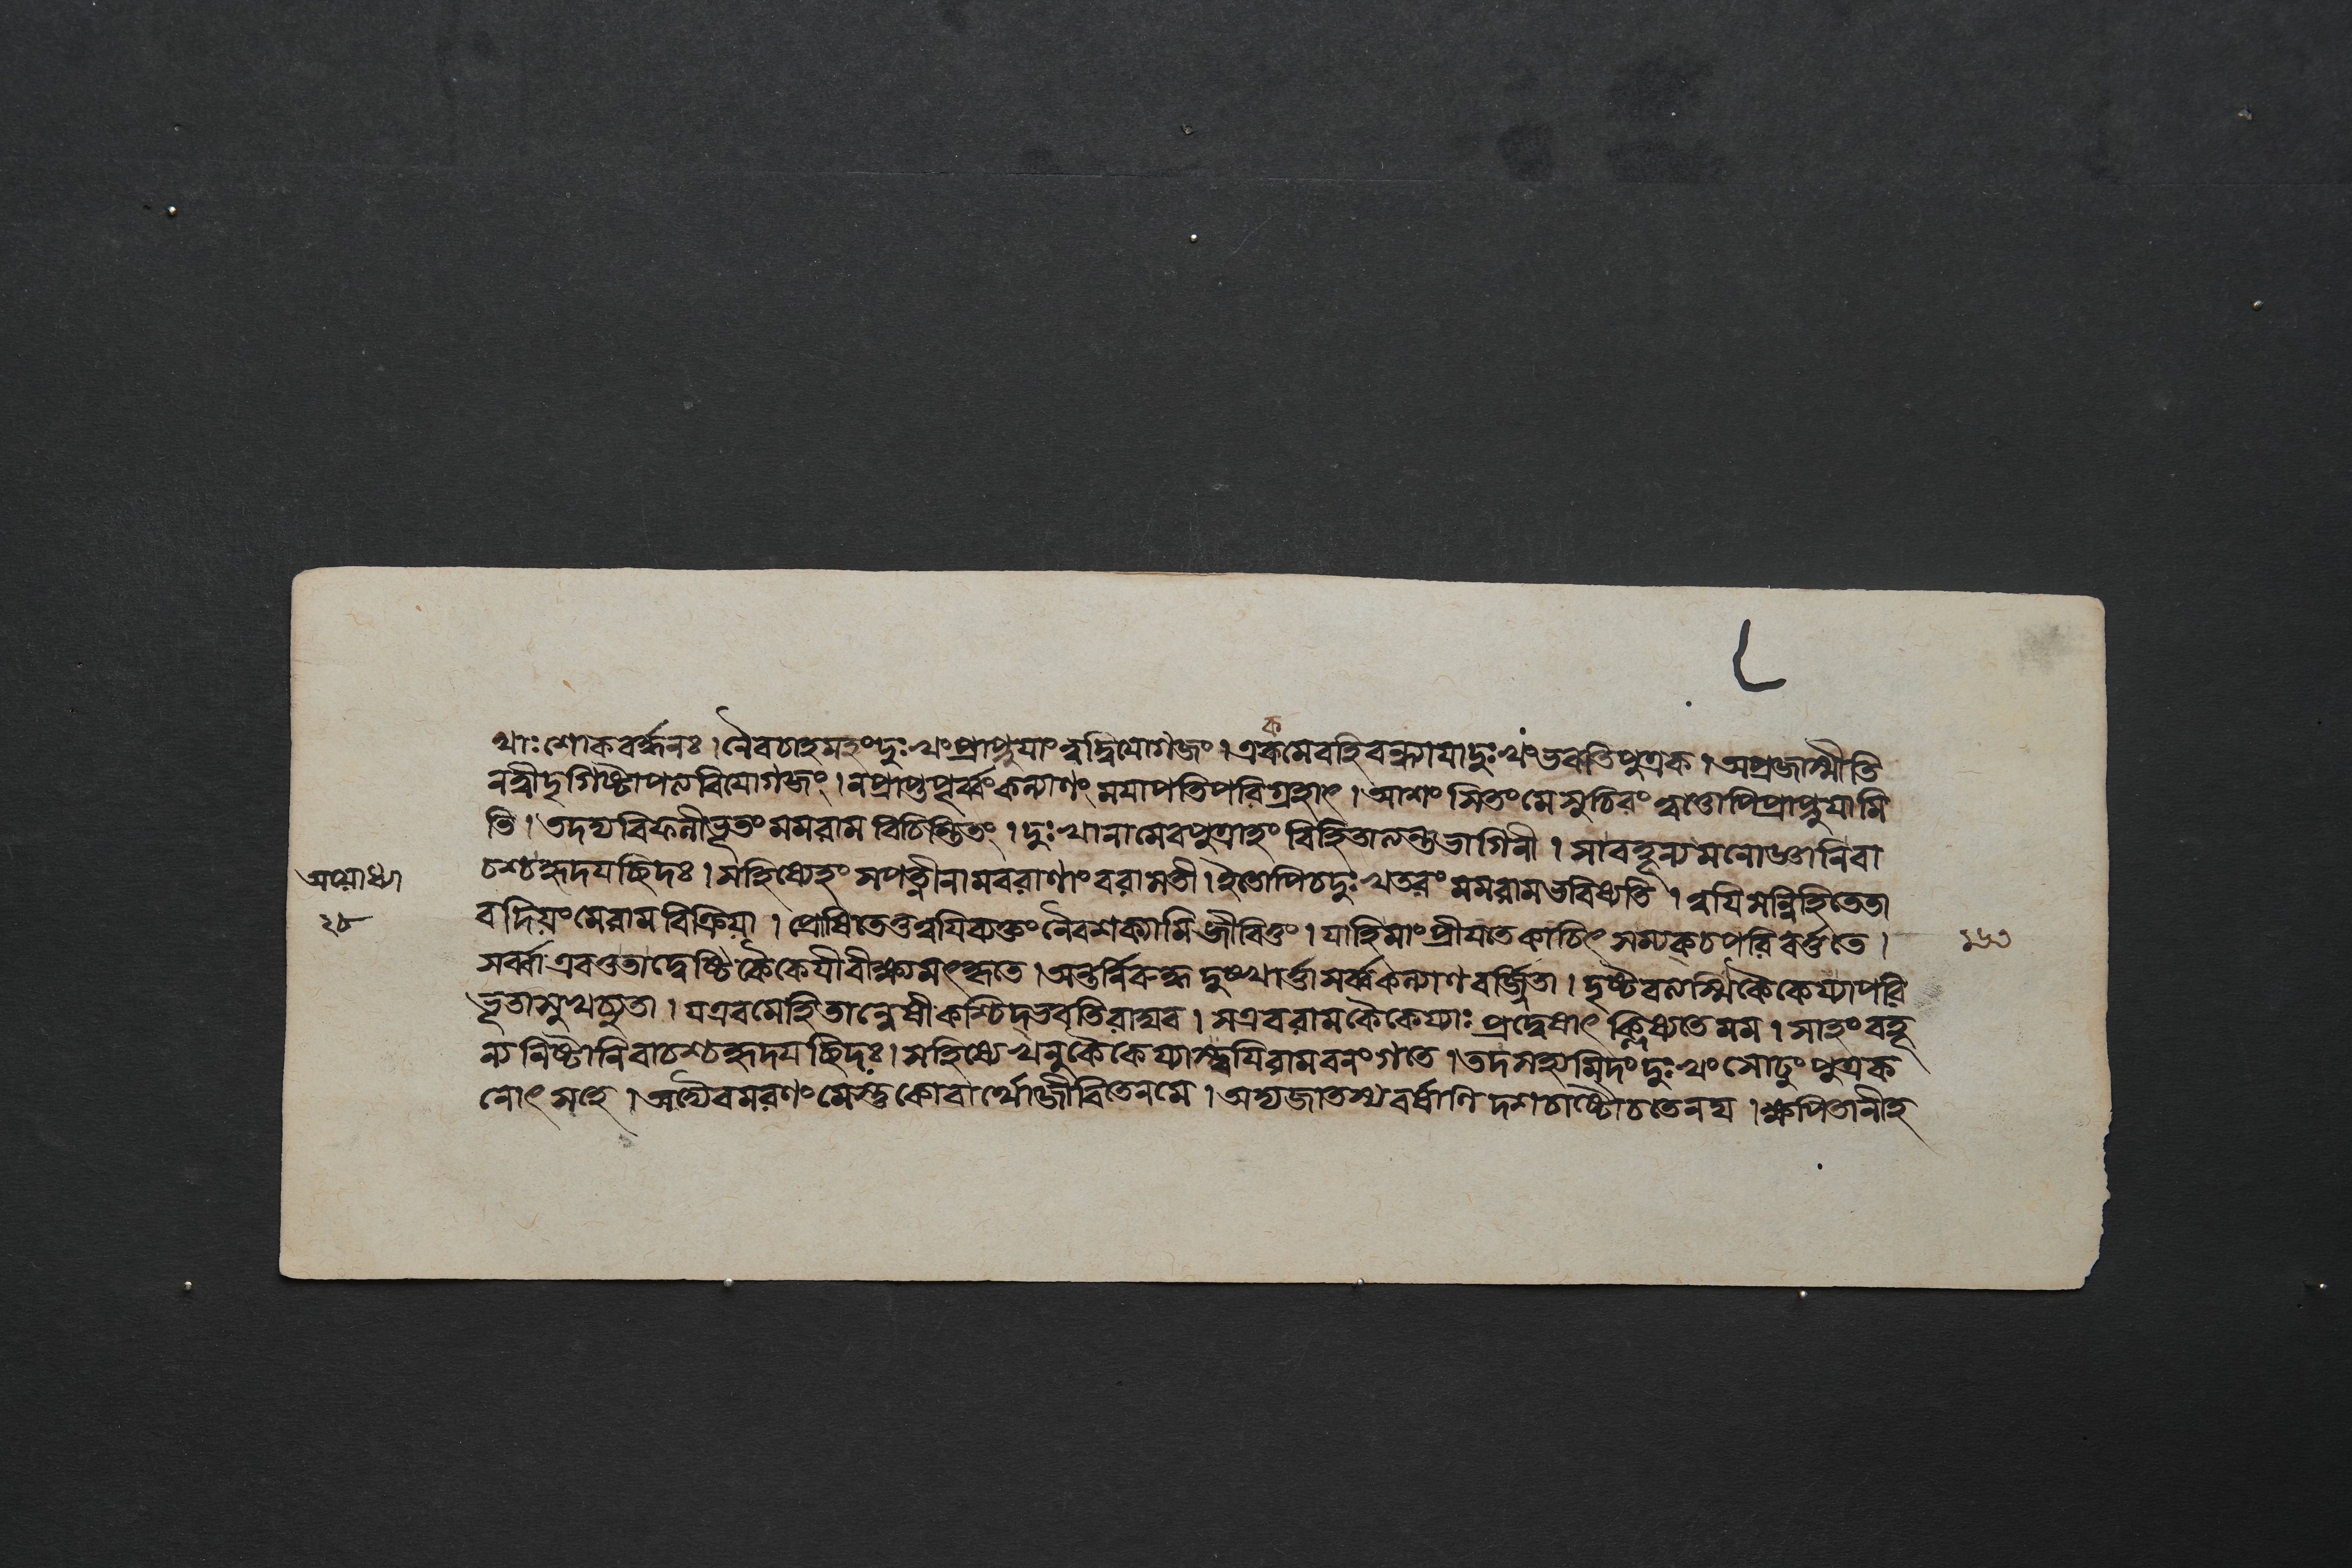 ক
থাঃ শোকবর্দ্ধনঃ । নৈবচাহমহংদুঃখংপ্রাপ্নুযাংত্বদ্বিযোগজং । একমেবহিবন্ধ্যাযাদুঃখংভবতিপুত্রক । অপ্রজাস্মীতি
নত্বীদৃগিষ্টাপত্যবিযোগজং । নপ্রাপ্তপূর্ব্বংকল্যাণং মযাপতিপরিগ্রহাৎ । আশংসিতংমেসুচিরং ত্বত্তোপিপ্রাপ্নুযামি
তি । তদদ্যবিফলীভূতংমমরাম বিচিন্তিতং । দুঃখানামেবপুত্রাহং বিহিতাত্যন্তভাগিনী । সাবহূন্যমনোজ্ঞানিবা
চশ্চহৃদযচ্ছিদঃ । সহিষ্যেহং সপত্নীনামবরাণাংবরাসতী । ইতোপিচদুঃখতরং মমরামভবিষ্যতি । ত্বযিসন্নিহিতেতা
বদিয়ংমেরামবিক্রিয়া । প্রোষিতেতুত্বযিব্যক্তংনৈবশক্যামিজীবিতুং । যাহিমাংপ্রীযতেকাচিৎ সম্যক্চপরিবর্ত্ততে ।
সর্ব্বাএবতুতাদ্বেষ্টিকৈকেযীবীক্ষ্যমৎকৃতে । অন্তর্নিরুদ্ধদুঃখার্ত্তাসর্ব্বকল্যাণবর্জ্জিতা । দৃষ্টৈবলস্মিকৈকেয্যাপরি
ভূতাসুখচ্যুতা । যএবমেহিতান্বেষীকশ্চিদ্ভবতিরাঘব । সএবরামকৈকেয্যাঃ প্রদ্বেষাৎ ক্লিশ্যতেমম । সাহংবহূ
ন্যনিষ্টানিবাচশ্চহৃদযচ্ছিদঃ । সহিষ্যেখলুকৈকেয্যাস্ত্বযিরামবনংগতে । তদসহ্যমিদংদুঃখংসোঢুংপুত্রক
নোৎসহে । অদ্যৈবমরণংমেস্তুকোবার্থোজীবিতেনমে । অদ্যজাতস্যবর্ষাণি দশচাষ্টৌচতেনঘ । ক্ষপিতানীহ
অযোধ্যা
২৮
১৬৩